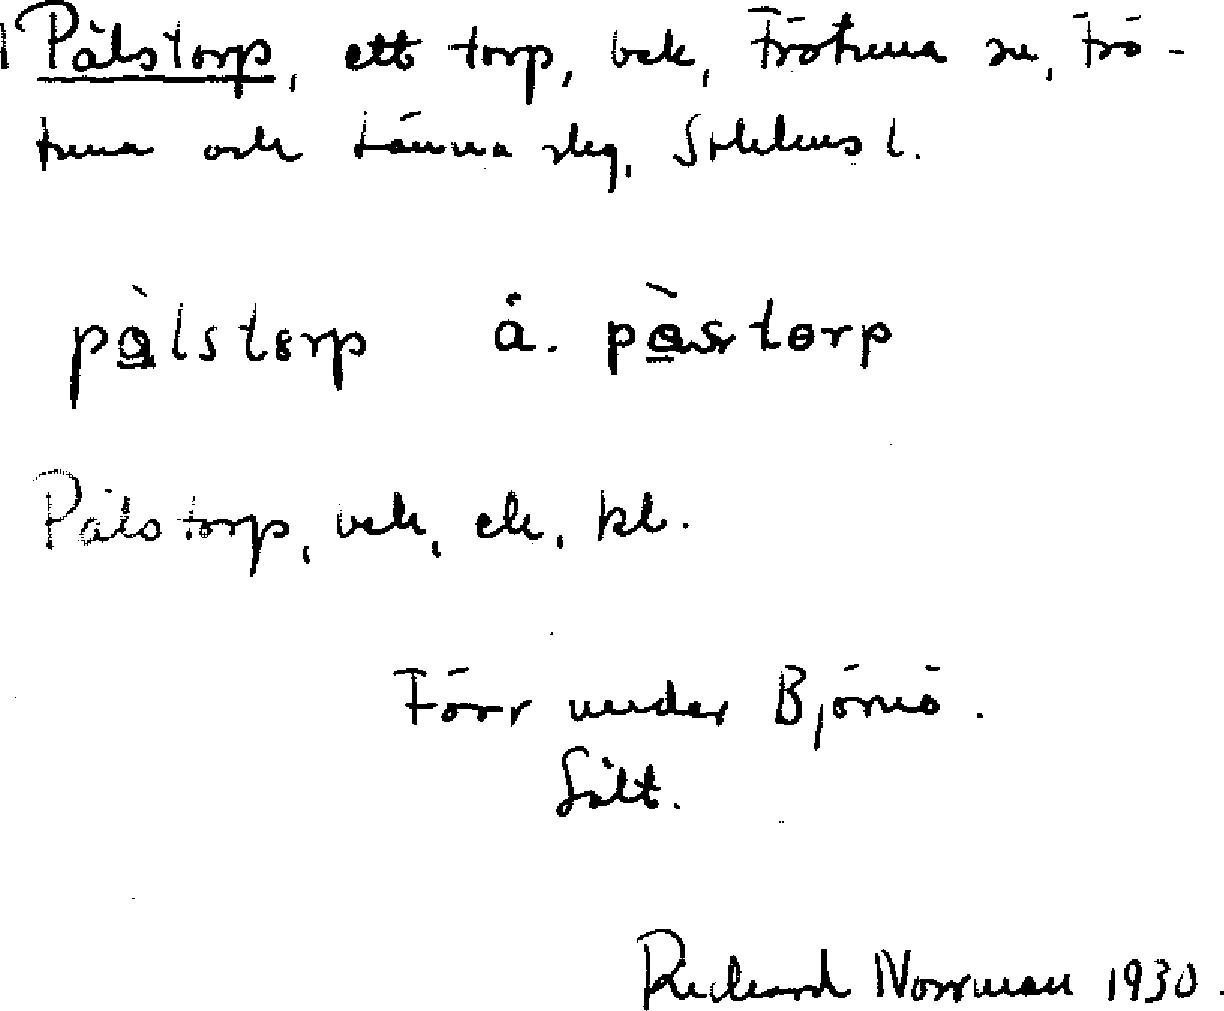 Pålstorp, ett torp, bek, Frötuna sn, Frö-
tuna och Länna slg, Stklms l.
pålstorp å. påstorp
Pålstorp, bek, ek, kl.
Förr under Björnö.
Sält.
Richard Norrman 1930.